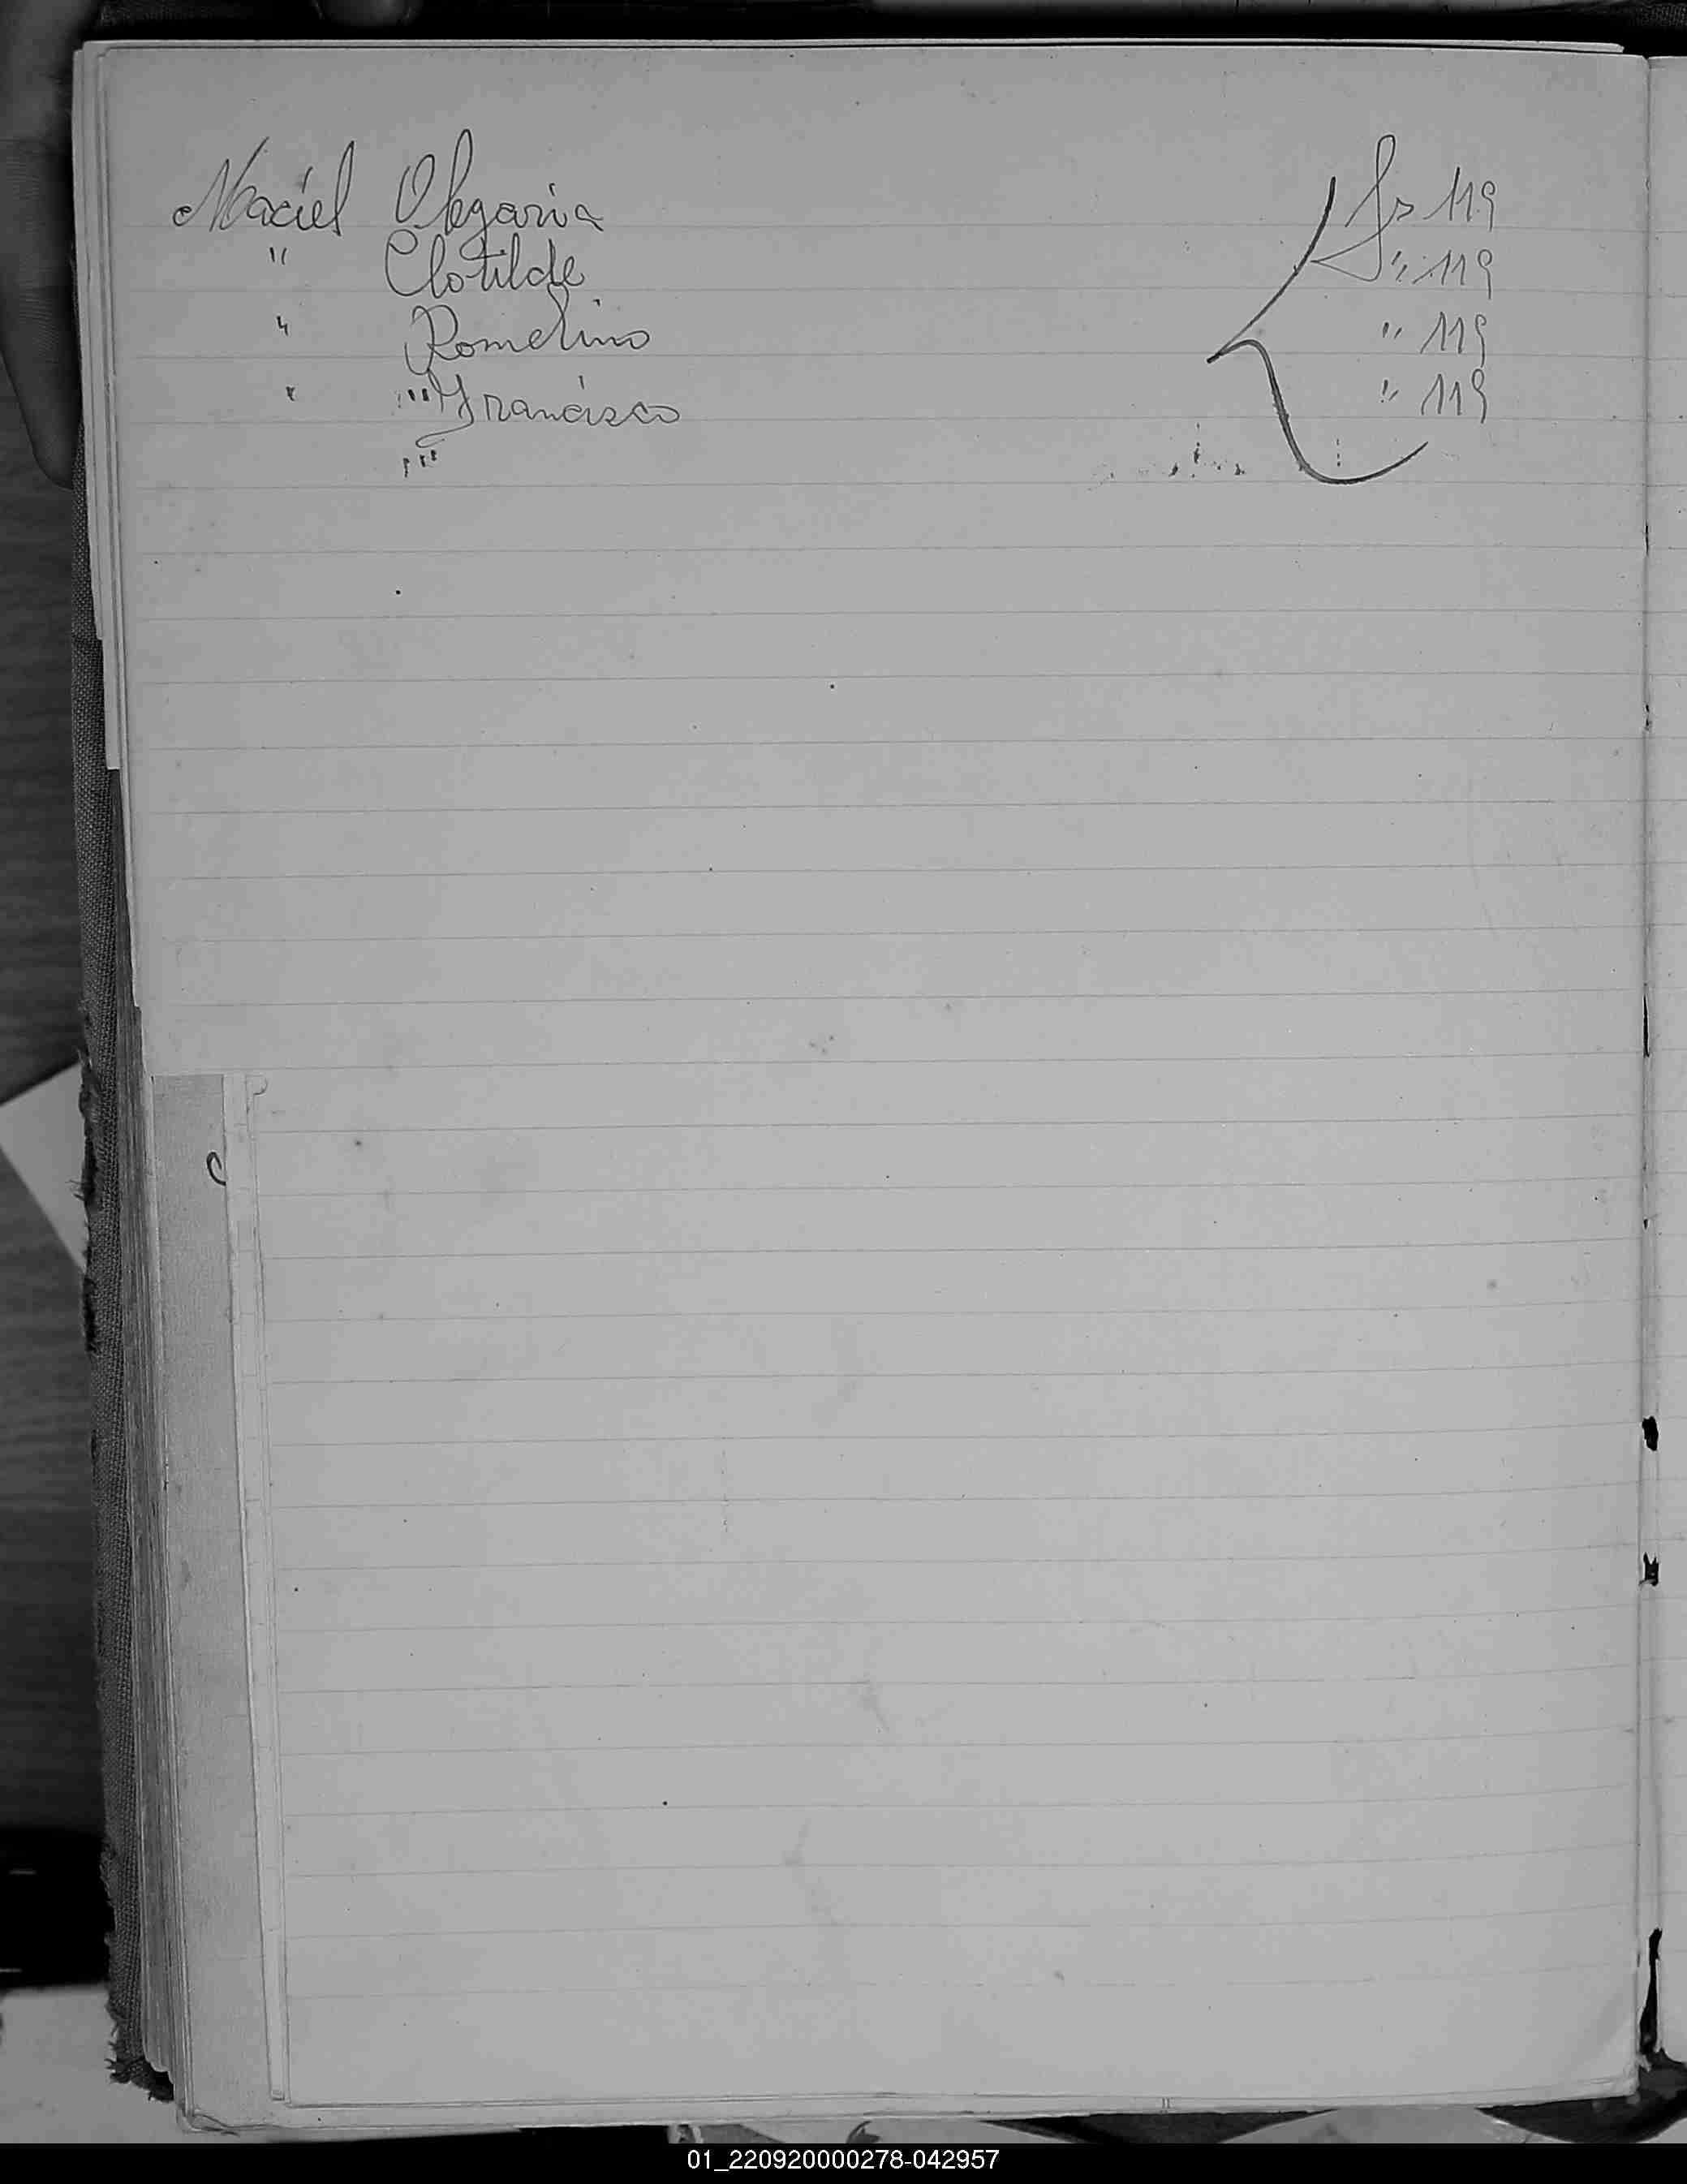 Maciel Olegaria fs 119
" Clotilde " 119
" Romelino " 119
" Francisco " 119
C
01_220920000278-042957